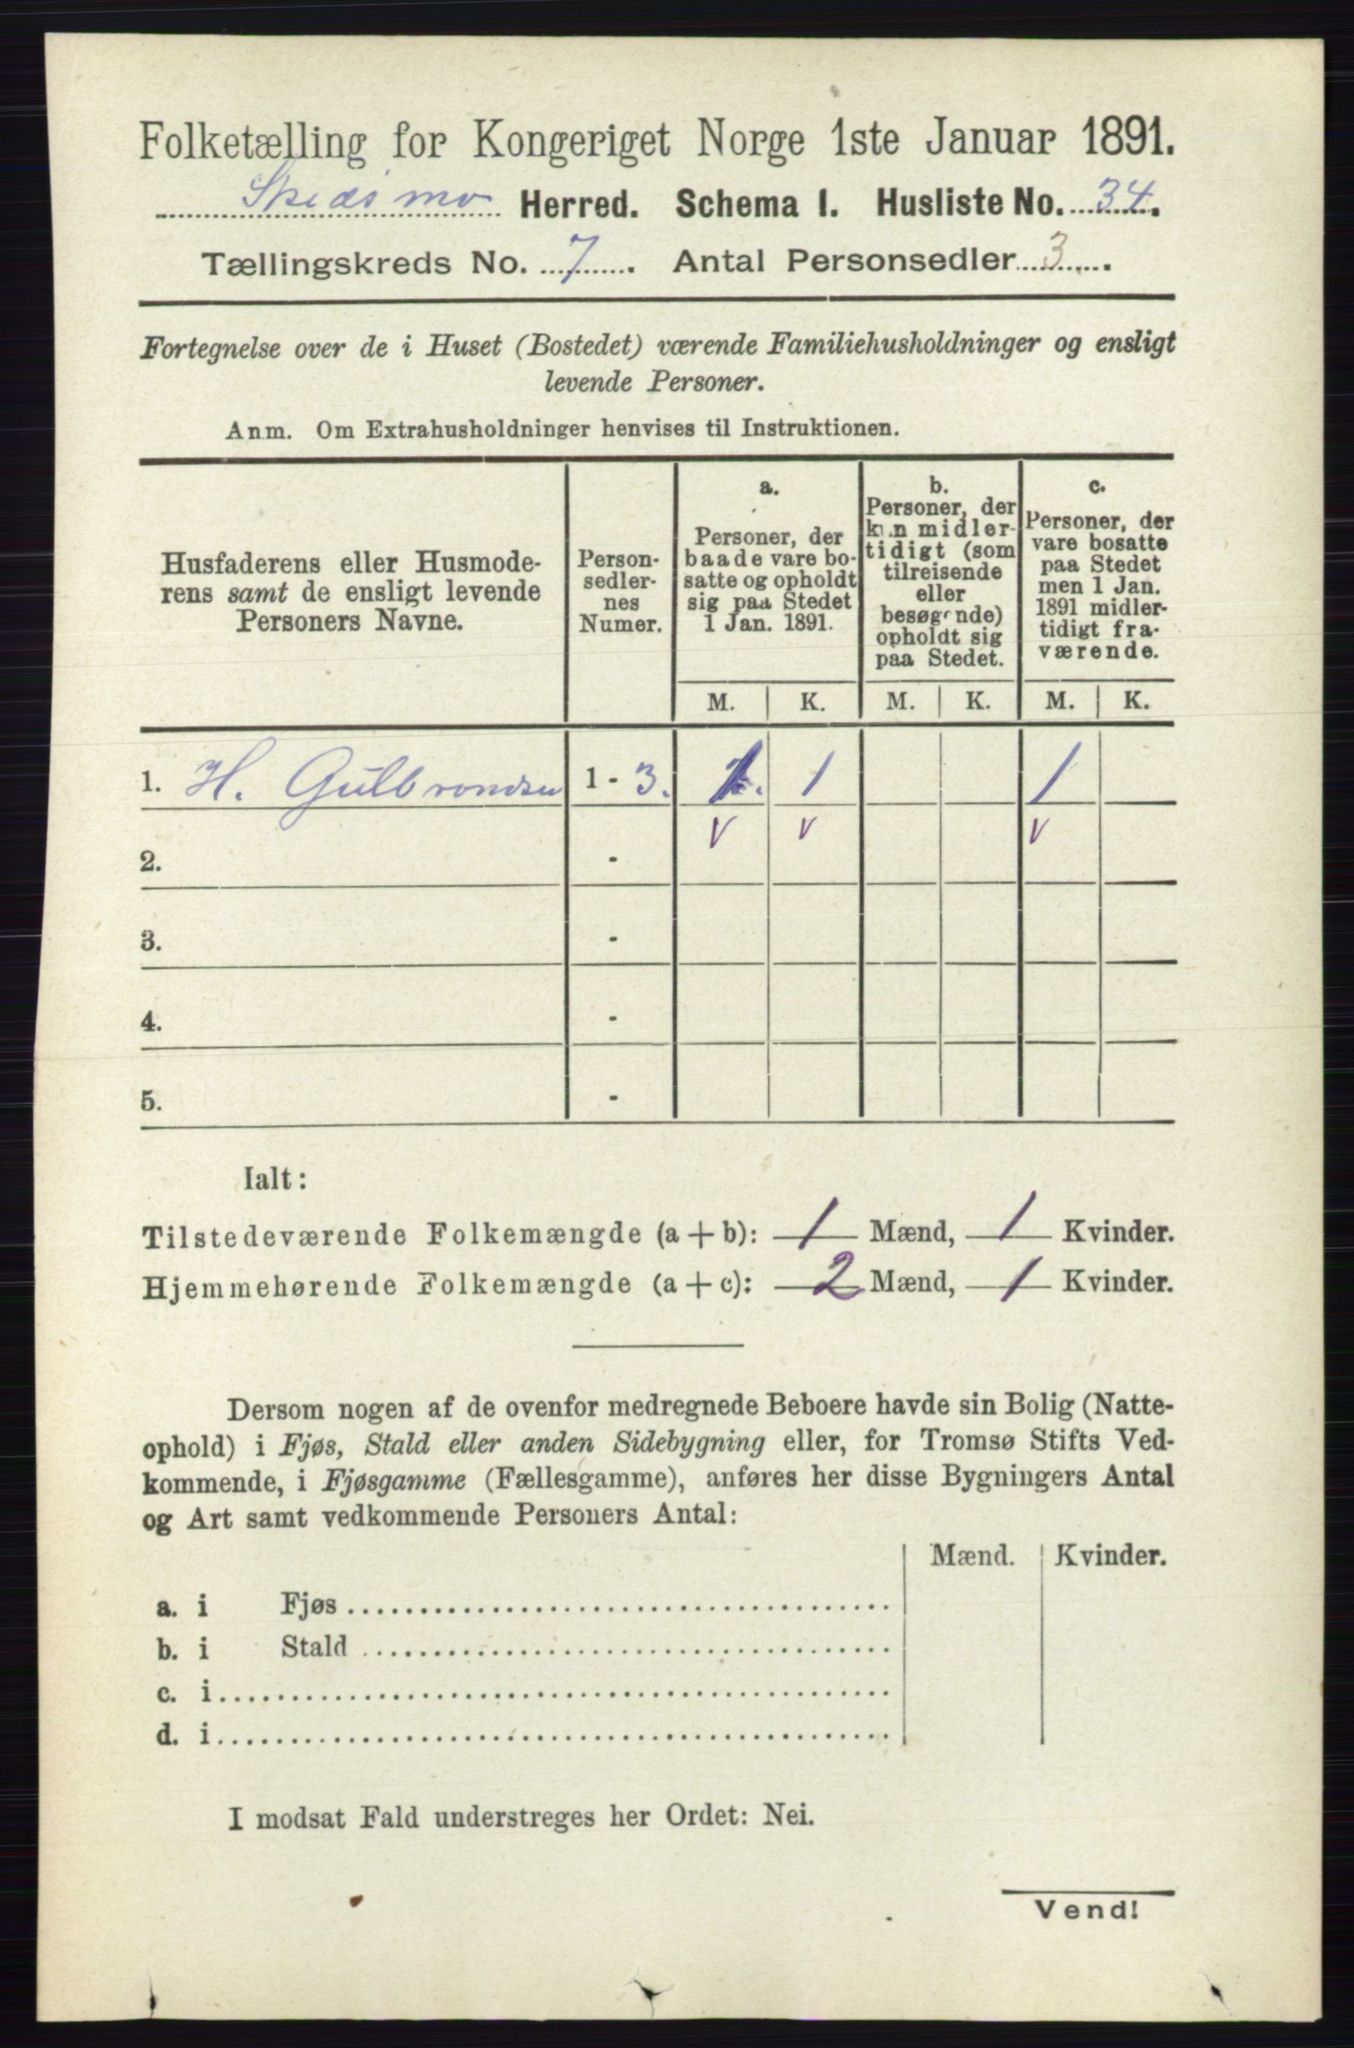 Folketælling for Kongeriget Norge 1ste Januar 1891.
Skedsmo Herred. Schema I. Husliste No. 34.
Tællingskreds No. 7. Antal Personsedler 3.
Fortegnelse over de i Huset (Bostedet) værende Familiehusholdninger og ensligt
levende Personer.
Anm. Om Extrahusholdninger henvises til Instruktionen.
Husfaderens eller Husmode-
rens samt de ensligt levende
Personers Navne.
Person-
sedler-
nes
Numer.
a.
Personer, der
baade vare bo-
satte og opholdt
sig paa Stedet
1 Jan. 1891.
b.
Personer, der
kun midler-
tidigt (som
tilreisende
eller
besøgende)
opholdt sig
paa Stedet.
c.
Personer, der
vare bosatte
paa Stedet
men 1 Jan.
1891 midler-
tidigt fra-
værende.
M. K. M. K. M. K.
1. H. Gulbrandsen 1 - 3. 1. 1 1
V V V
2. -
3. -
4. -
5. -
Ialt:
Tilstedeværende Folkemængde (a + b): 1 Mænd, 1 Kvinder.
Hjemmehørende Folkemængde (a + c): 2 Mænd, 1 Kvinder.
Dersom nogen af de ovenfor medregnede Beboere havde sin Bolig (Natte-
ophold) i Fjøs, Stald eller anden Sidebygning eller, for Tromsø Stifts Ved-
kommende, i Fjøsgamme (Fællesgamme), anføres her disse Bygningers Antal
og Art samt vedkommende Personers Antal:
Mænd. Kvinder.
a. i Fjøs
b. i Stald
c. i
d. i
I modsat Fald understreges her Ordet: Nei.
Vend!